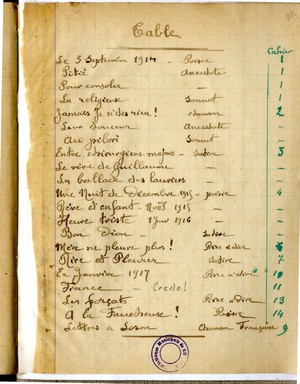 Table
Cahier
Le 3 Septembre 1914 - Poésie 1
Pitié Anecdote 1
Pour consoler — 1
La religieuse Sonnet 1
Jamais je n'des rien! chanson 2
Leur douceur Anecdote
Au pilori Sonnet
Entre chirurgiens-majors - Satire 3
Le rire de Guillaume —
La ballade des lauriers —
Une Nuit de Décembre 1915 - poésie 4
Père et enfant Noël 1915 —
Heure triste 1 Janv 1916 —
Bon Dieu Satire
Mère ne pleure plus! 6
Rire et Pleurer Satire 7
En Janvier 1917 10
France — Credo! 11
Les forçats 13
A la Faucheuse! Poésie 14
Lettres à Chanson Française 9